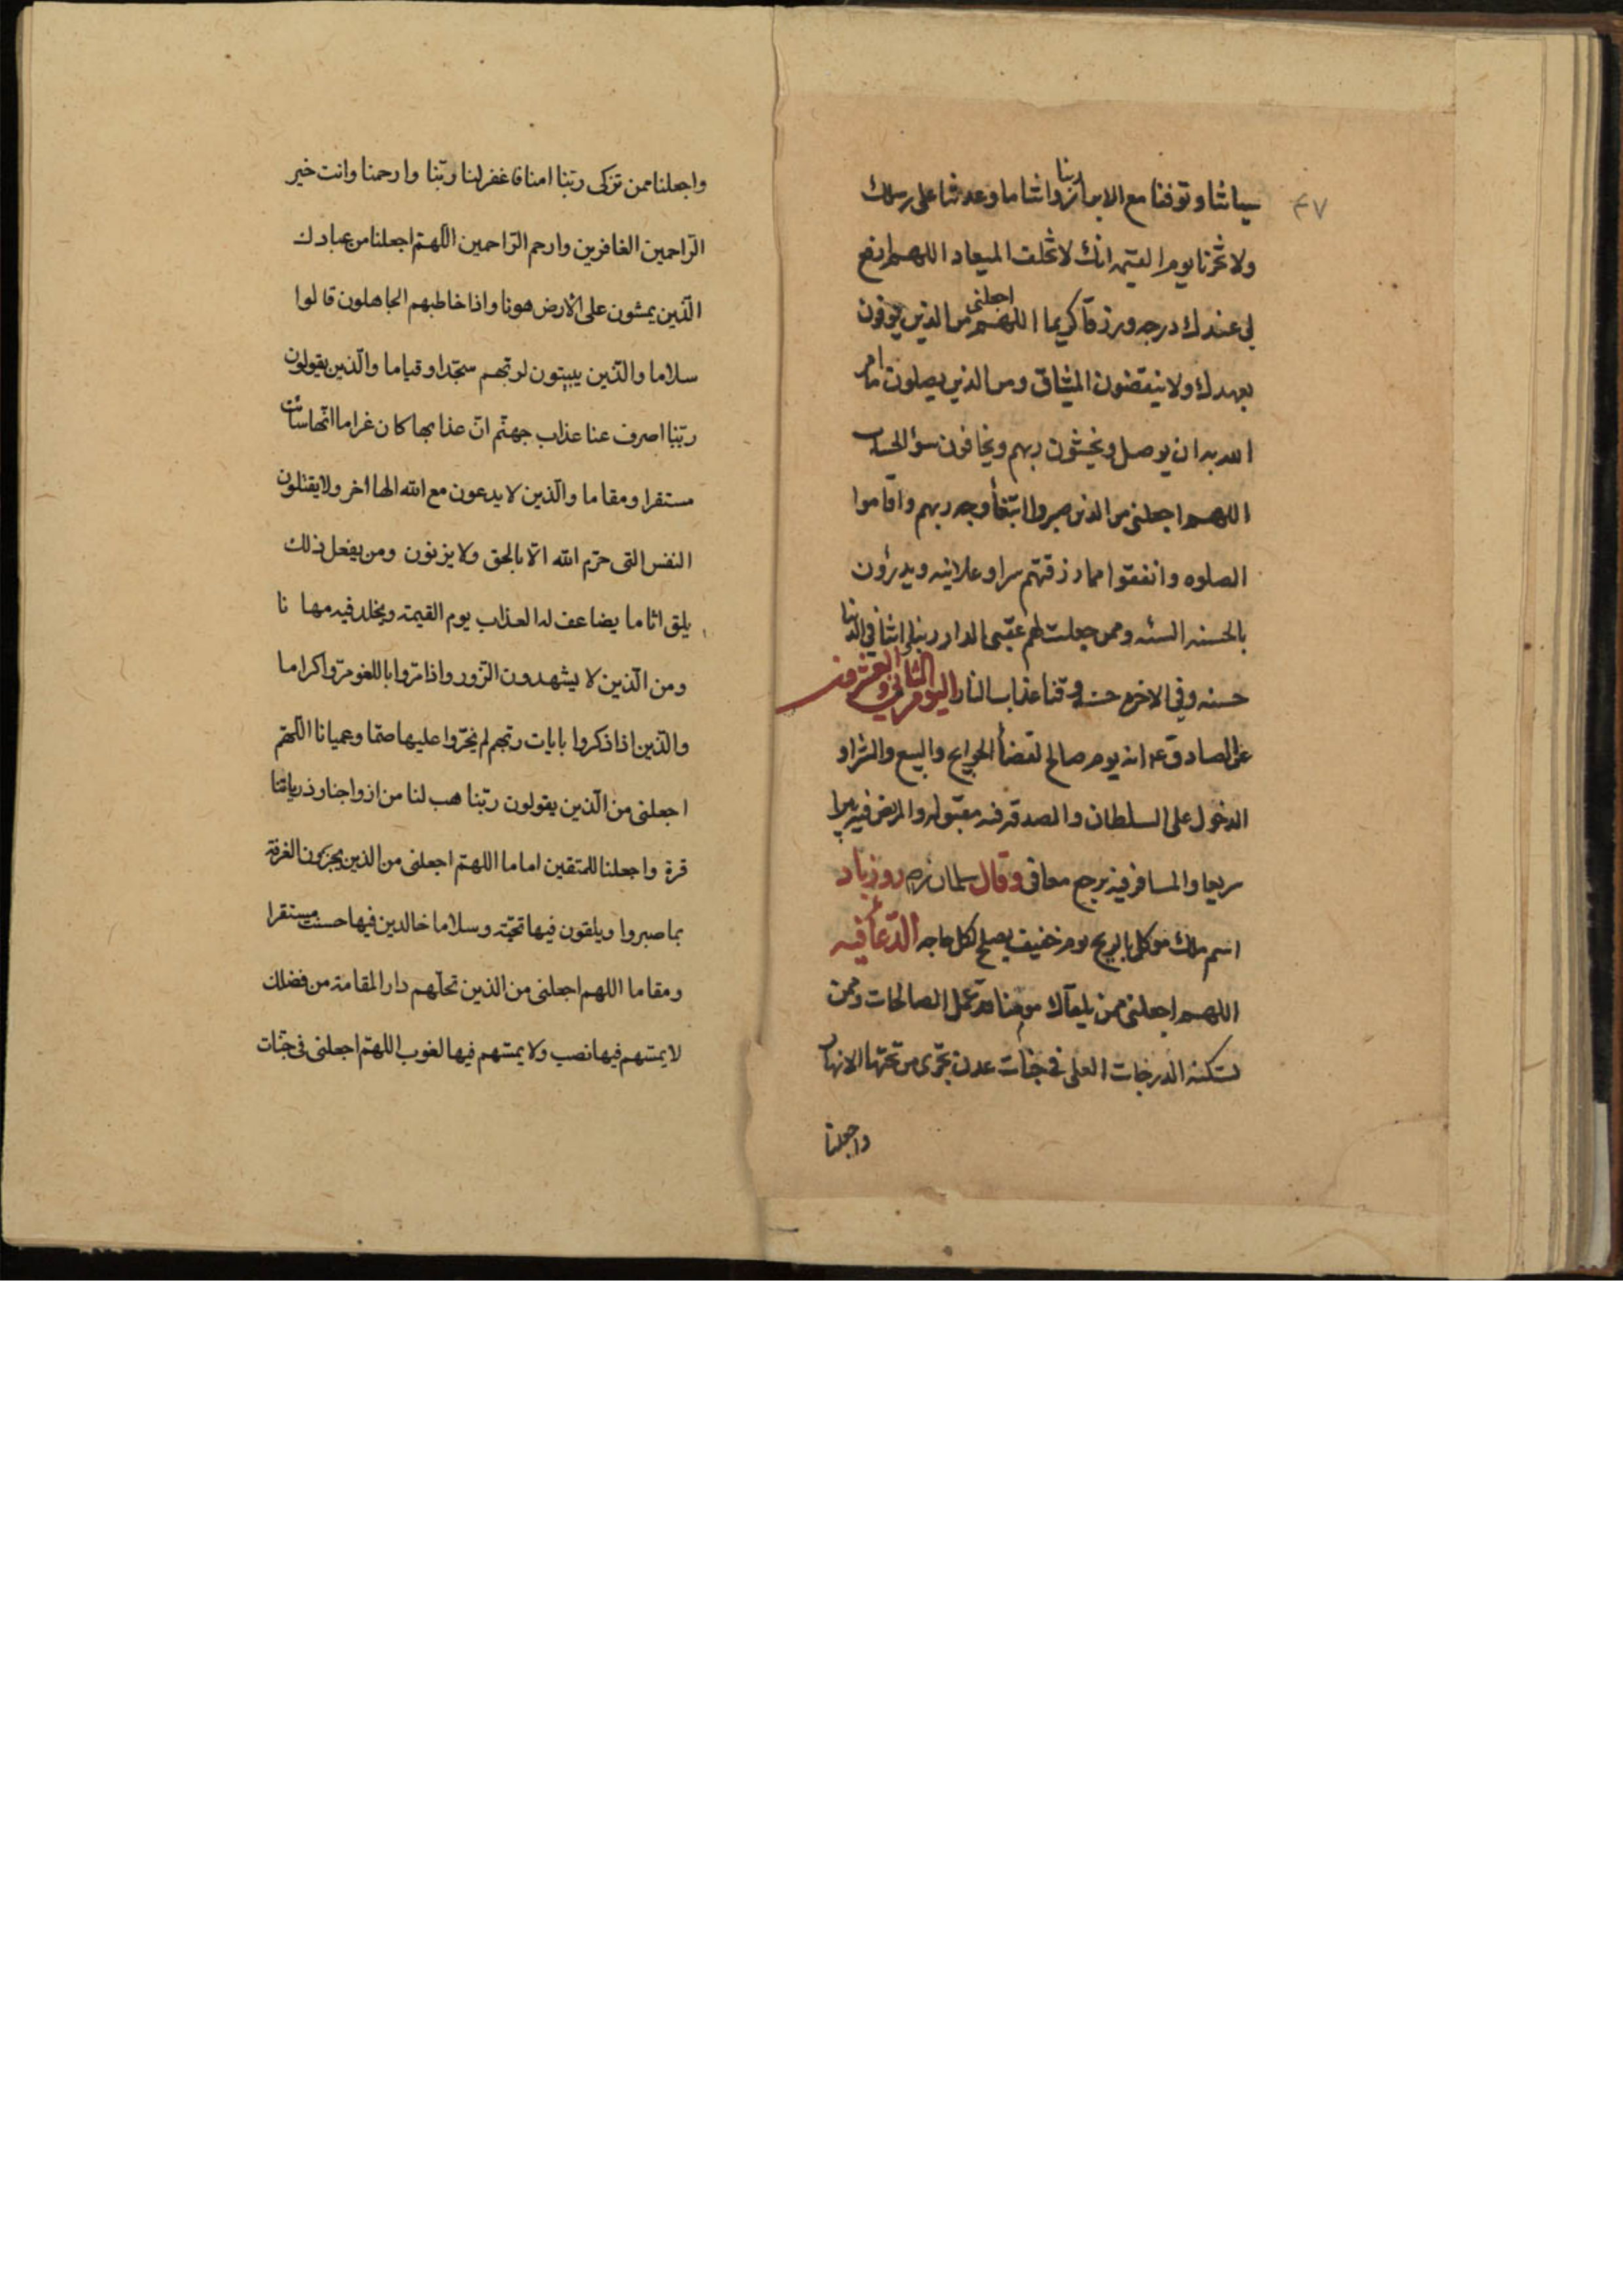 ٤٧
سياتنا وتوفنا مع الابرار ربنا واتنا ما وعدتنا على رسلك
ولا تخزنا يوم القيمه انك لا تخلف الميعاد اللهم ارفع
لى عندك درجه ورزقا كريما اللهم اجعلنى من الذين يوفون
بعهدك ولا ينقضون الميثاق ومن الذين يصلون ما امر
الله به ان يوصل ويخشون ربهم ويخافون سؤ الحساب
اللهم اجعلنى من الذين صبروا ابتغأ وجه ربهم واقاموا
الصلوه وانفقوا مما رزقتهم سرا وعلانيه ويدرؤن
بالحسنه السئه وممن جعلت لهم عقبى الدار ربنا اتنا فى الدنيا
حسنه وفى الاخره حسنه وقنا عذاب النار اليوم الثانى والعشرون
عن الصادق ع انه يوم صالح لقضأ الحوايج والبيع والشرا و
الدخول على السلطان والصدقه فيه مقبوله والمريض فيه يبرا
سريعا والمسافر فيه يرجع معافى وقال سلمان ره روز باد
اسم ملك موكل بالريح يوم خفيف يصلح لكل حاجه الدعأ فيه
اللهم اجعلنى ممن يلقاك مومنا قد عمل الصالحات وممن
تسكنه الدرجات العلى فى جنات عدن تجرى من تحتها الانهار
واجعلنا
واجعلنا ممن تزكى ربّنا امنا فاغفر لنا ربّنا وارحمنا وانت خير
الرّاحمين الغافرين وارحم الرّاحمين اللّهمّ اجعلنا من عبادك
الّذين يمشون على الارض هونا واذا خاطبهم الجاهلون قالوا
سلاما والّذين يبيتون لربّهم سجّدا وقياما والّذين يقولون
ربّنا اصرف عنا عذاب جهنّم انّ عذابها كان غراما انّها سائت
مستقرا ومقاما والّذين لا يدعون مع اللّه الها اخر ولا يقتلون
النفس التى حرّم اللّه الّا بالحق ولا يزنون ومن يفعل ذلك
يلق اثاما يضاعف له العذاب يوم القيمة ويخلد فيه مها نا
ومن الّذين لا يشهدون الزّور واذا مرّوا باللغو مرّوا كراما
والّذين اذا ذكروا بايات ربّهم لم يخرّوا عليها صمّا وعميانا اللّهمّ
اجعلنى من الّذين يقولون ربّنا هب لنا من ازواجنا وذرياتنا
قرة واجعلنا للمتقين اماما اللهمّ اجعلنى من الذين يجزون الغرفة
بما صبروا ويلقون فيها تحيّة وسلاما خالدين فيها حسنت مستقرا
ومقاما اللهم اجعلنى من الذين تحلّهم دار المقامة من فضلك
لا يمسّهم فيها نصب ولا يمسّهم فيها لغوب اللهمّ اجعلنى فى جنّات